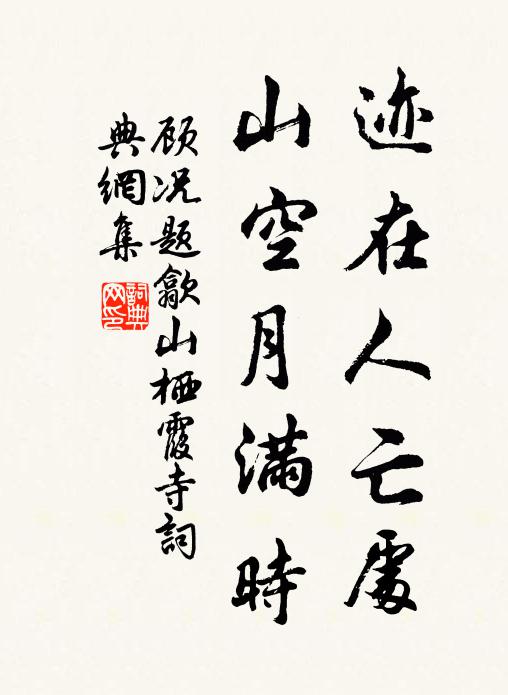 迹在人亡處
山空月滿時
顾况题歙山栖霞寺詞
典網集
詞典
网印